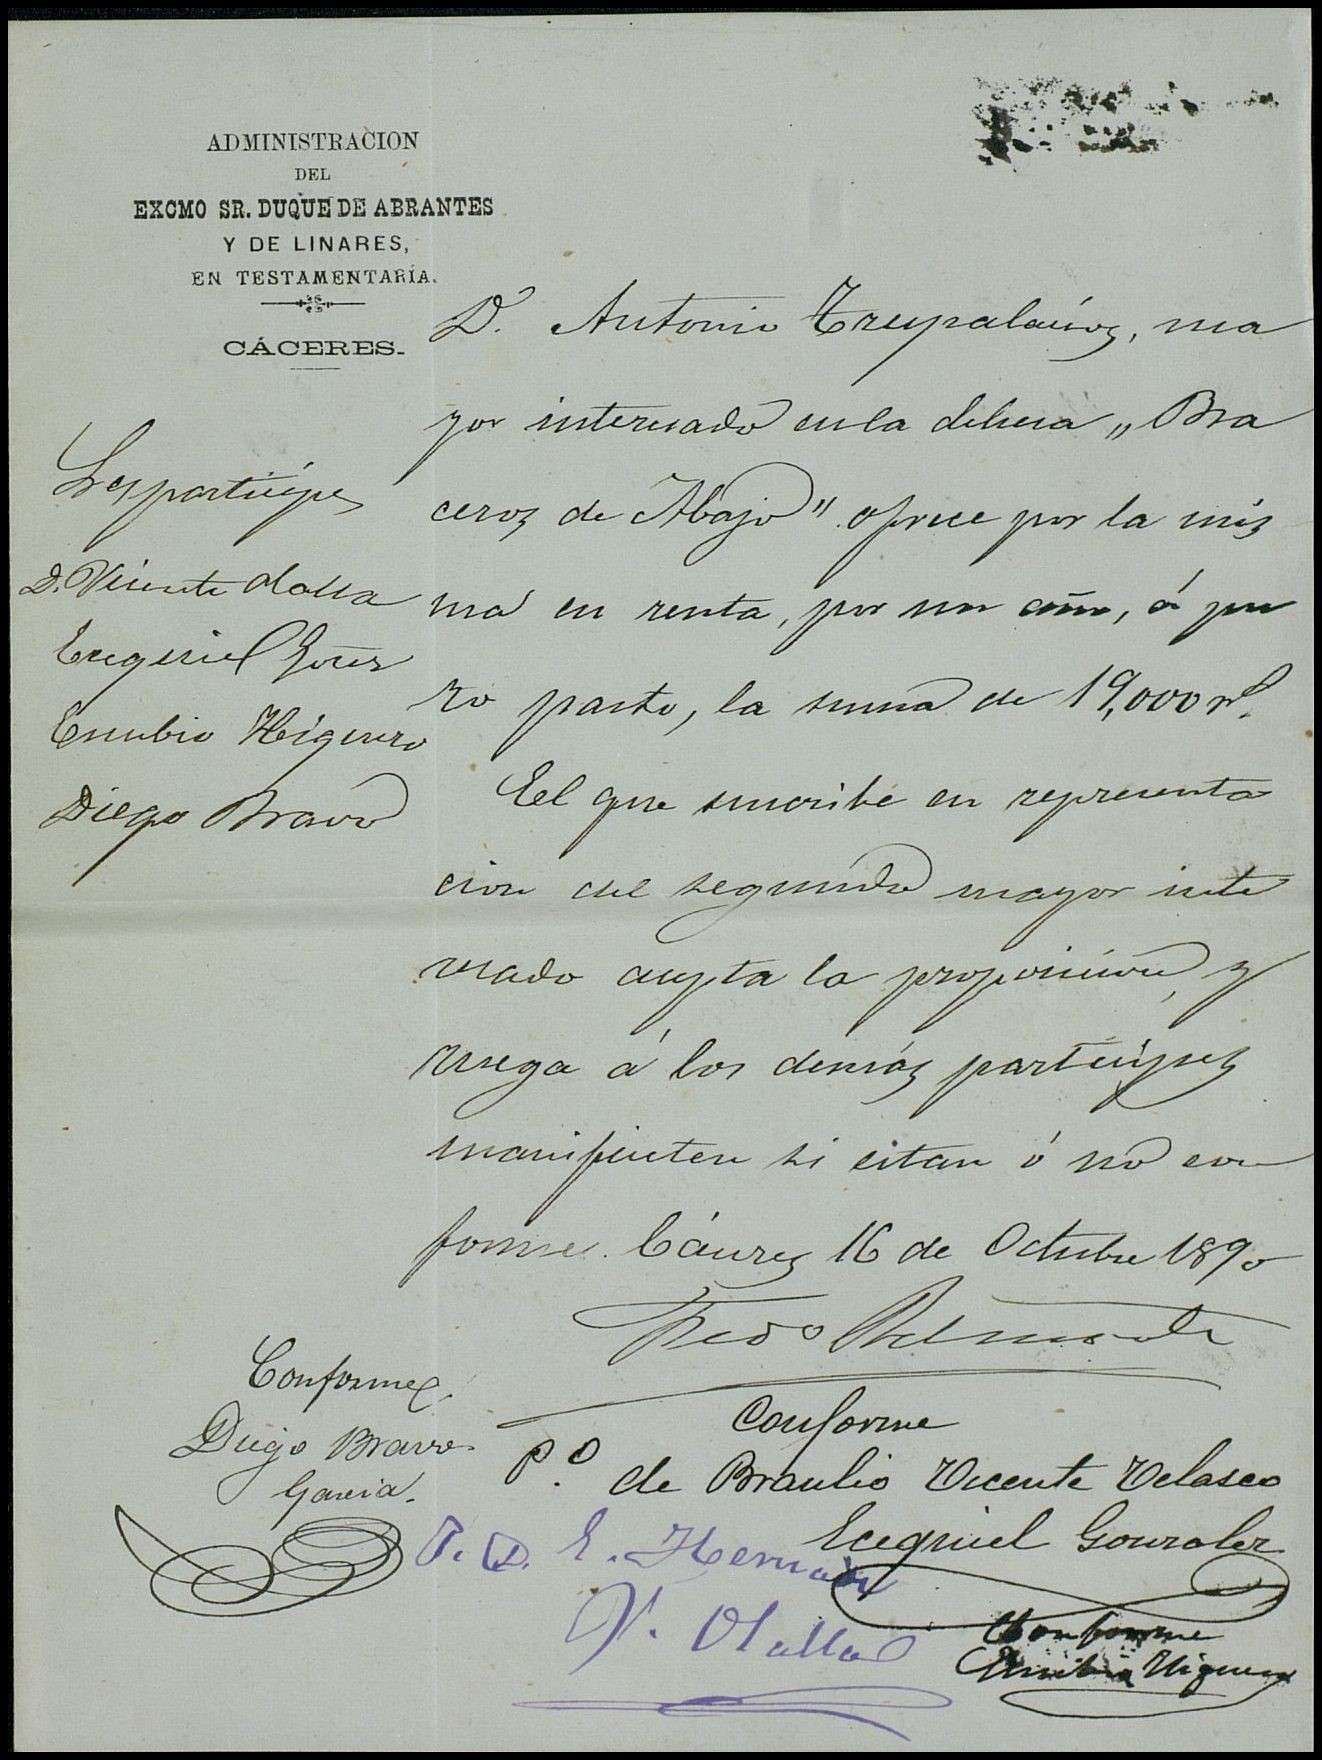 ADMINISTRACION
DEL
EXCMO SR. DUQUE DE ABRANTES
Y DE LINARES,
EN TESTAMENTARÍA.
CÁCERES.
D. Antonio Trespalacios, ma
yor interesado en la dehesa „Bra
ceros de Abajo" ofrece por la mis
ma en renta, por un año, á pu
ro pasto, la suma de 19,000 rs.
El que suscribe en representa
cion del segundo mayor inte
resado acepta la proposicion, y
ruega á los demás participes
manifiesten si estan ó no con
forme. Cáceres 16 de Octubre 1890
Sres participes
D. Vicente Olalla
Ezequiel Gonz
Eusebio Higuero
Diego Bravo
Conforme
Diego Bravo
Garcia.
Conforme
P.O de Braulio Vicente Velasco
Ecequiel Gonzalez
P. O. E. Hernan
V. Olalla
Conforme
Eusebio Higuero